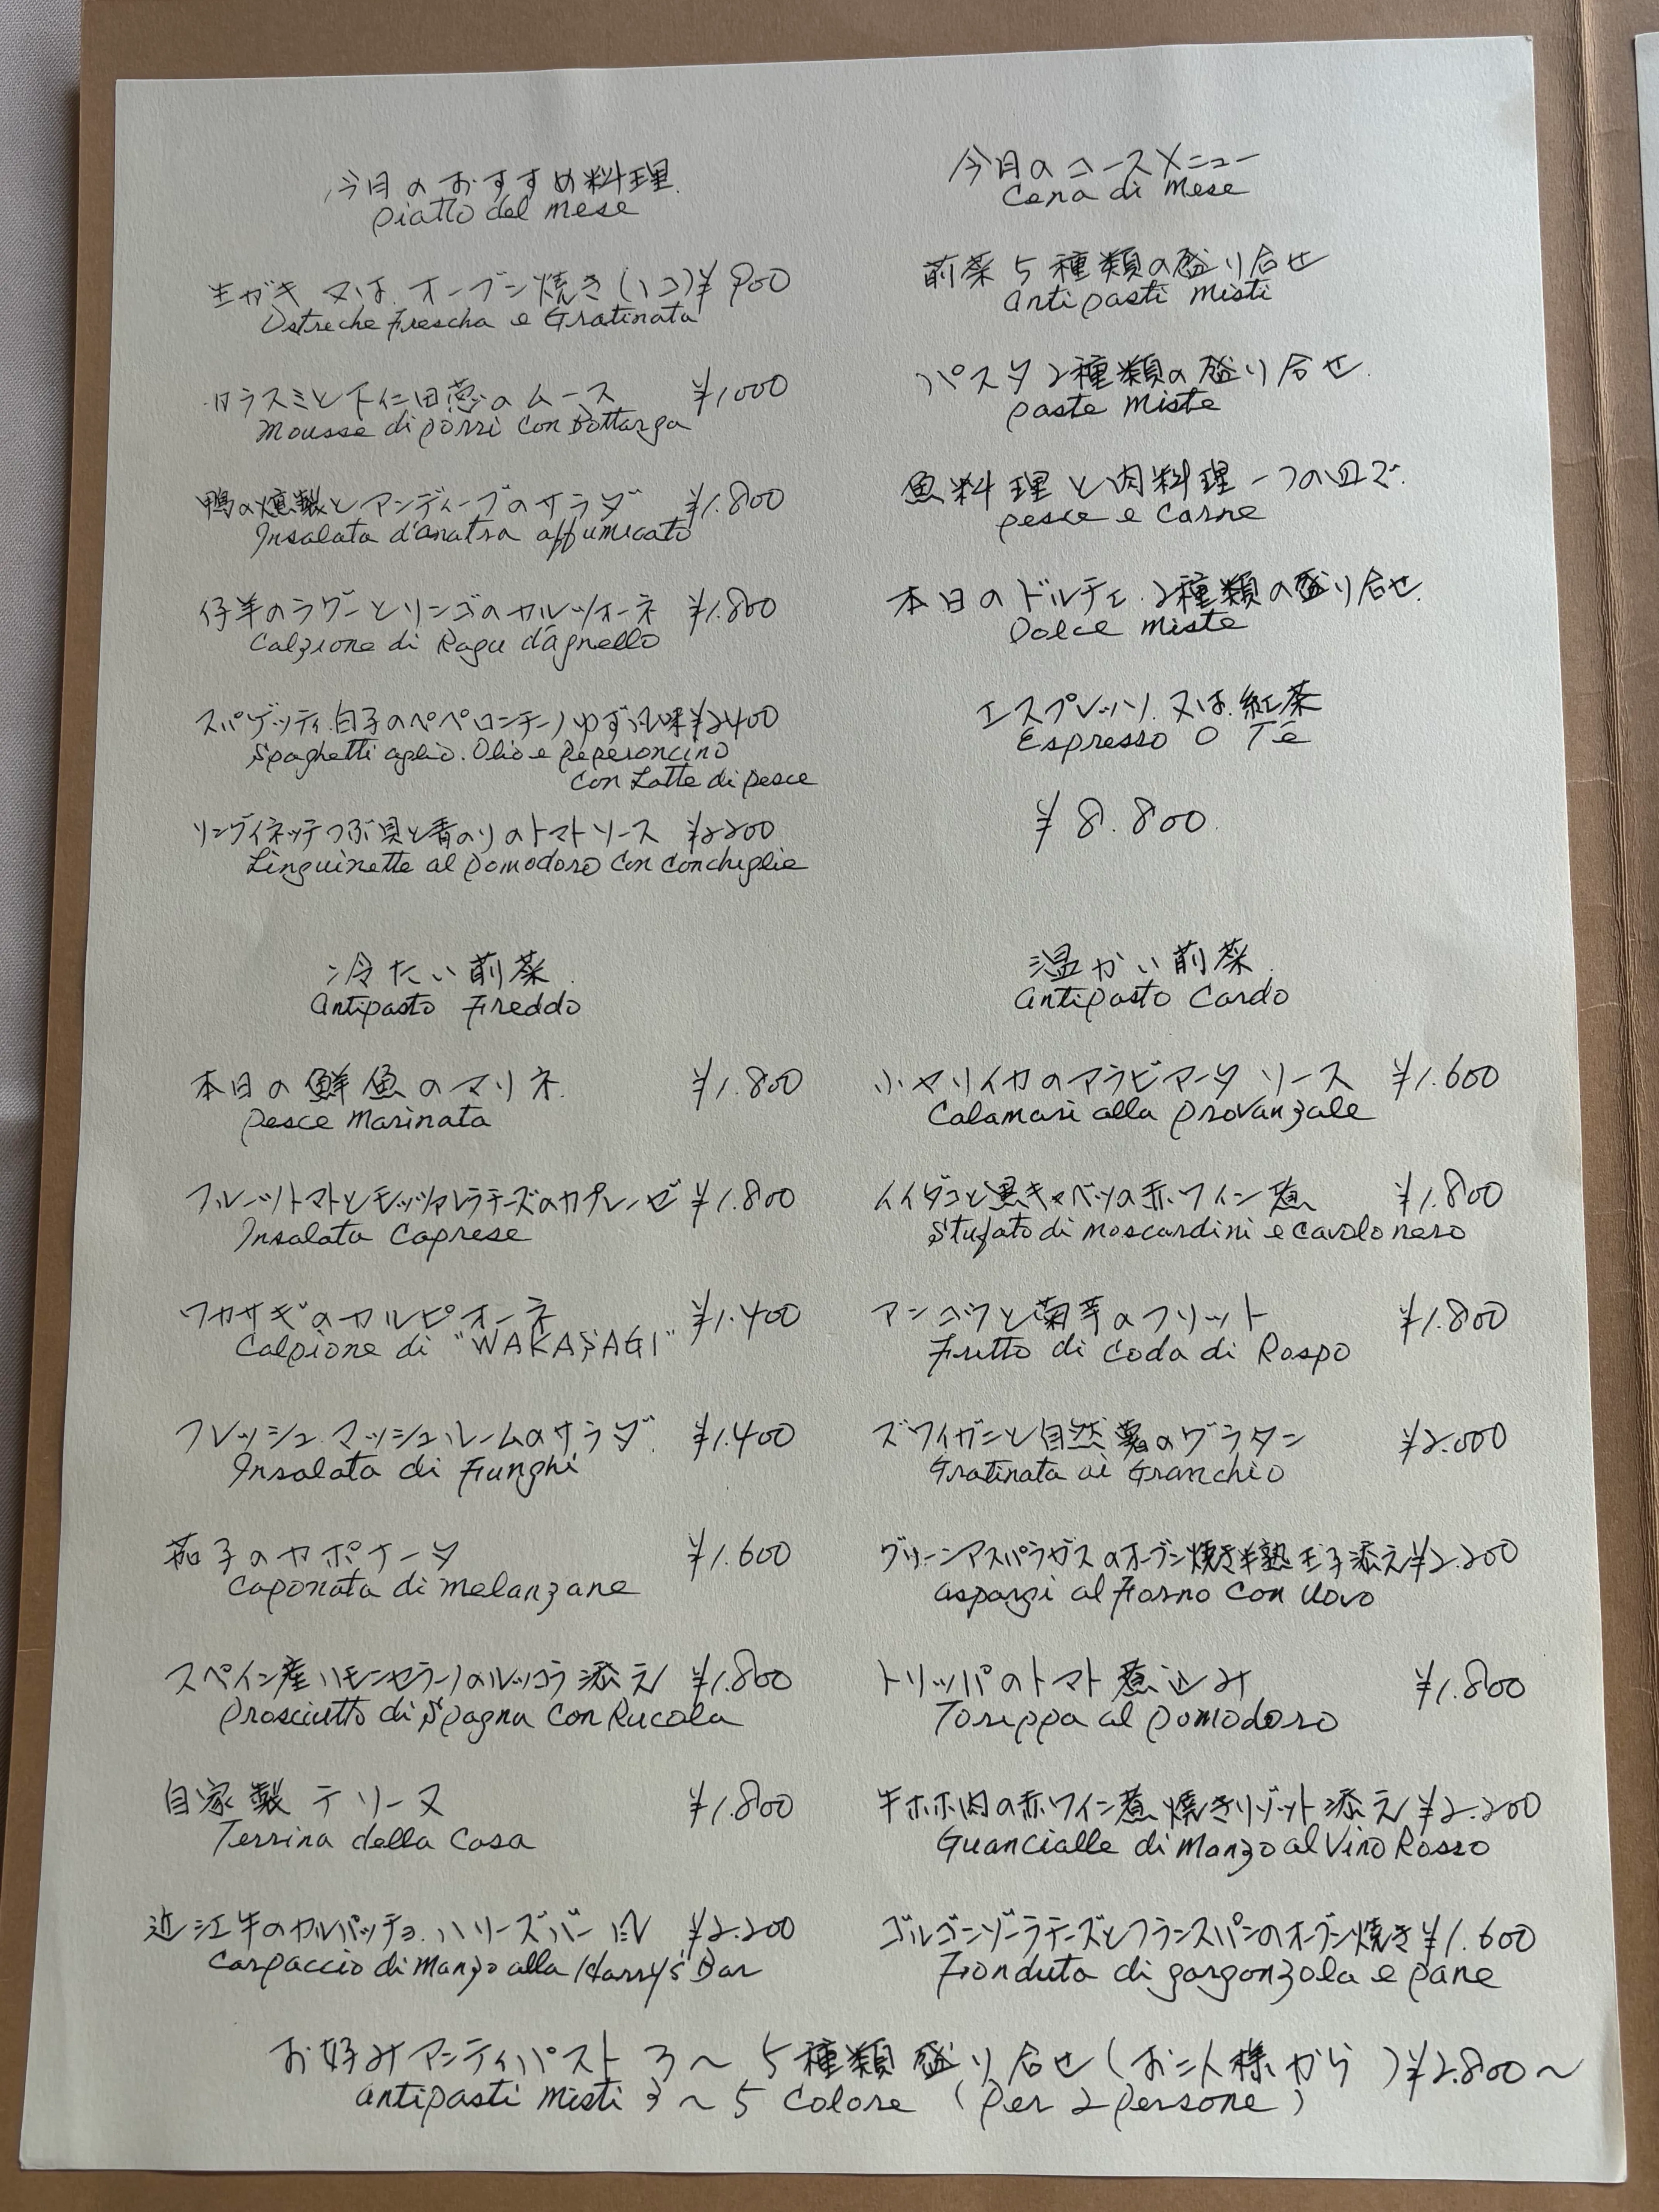 今月のおすすめ料理
piatto del mese
生ガキ 又は オーブン焼き(1コ)¥900
Ostreche Frescha e Gratinata
カラスミと下仁田葱のムース ¥1000
Mousse di porri con Bottarga
鴨の燻製とアンディーブのサラダ ¥1.800
Insalata d'anatra affumicato
仔羊のラグーとリンゴのカルツォーネ ¥1.800
Calzione di Ragu d'agnello
スパゲッティ白子のペペロンチーノゆず風味¥2400
Spaghetti aglio. Olio e peperoncino
con Latte di pesce
リングイネッテつぶ貝と青のりのトマトソース ¥2200
Linguinette al pomodoro con conchiglie
今月のコースメニュー
Cena di mese
前菜5種類の盛り合せ
antipasti misti
パスタ2種類の盛り合せ
paste miste
魚料理と肉料理一つの皿で
pesce e carne
本日のドルチェ 2種類の盛り合せ
Dolce miste
エスプレッソ 又は 紅茶
Espresso O Te
¥8.800
冷たい前菜
antipasto Freddo
本日の鮮魚のマリネ ¥1.800
pesce marinata
フルーツトマトとモッツァレラチーズのカプレーゼ ¥1.800
Insalata Caprese
ワカサギのカルピオーネ ¥1.400
Calpione di "WAKASAGI"
フレッシュマッシュルームのサラダ ¥1.400
Insalata di Funghi
茄子のカポナータ ¥1.600
caponata di melanzane
スペイン産ハモンセラーノのルッコラ添え ¥1.800
prosciutto di Spagna con Rucola
自家製テリーヌ ¥1.800
Terrina della Casa
近江牛のカルパッチョ ハリーズバー風 ¥2.200
carpaccio di manzo alla Harry's Bar
温かい前菜
antipasto Cardo
小ヤリイカのアラビアータ ソース ¥1.600
Calamari alla provanzale
イイダコと黒キャベツの赤ワイン煮 ¥1.800
Stufato di moscardini e cavolo nero
アンコウと菊芋のフリット ¥1.800
Fritto di coda di Rospo
ズワイガニと自然薯のグラタン ¥2.000
Gratinata ai Granchio
グリーンアスパラガスのオーブン焼き半熟玉子添え¥2.200
asparzi al Forno con Uovo
トリッパのトマト煮込み ¥1.800
Torippa al pomodoro
牛ホホ肉の赤ワイン煮 焼きリゾット添え ¥2.200
Guancialle di manzo al Vino Rosso
ゴルゴンゾーラチーズとフランスパンのオーブン焼き¥1.600
Fionduta di gorgonzola e pane
お好みアンティパスト 3〜5種類盛り合せ(お二人様から)¥2.800〜
antipasti misti 3〜5 Colore (per 2 persone)